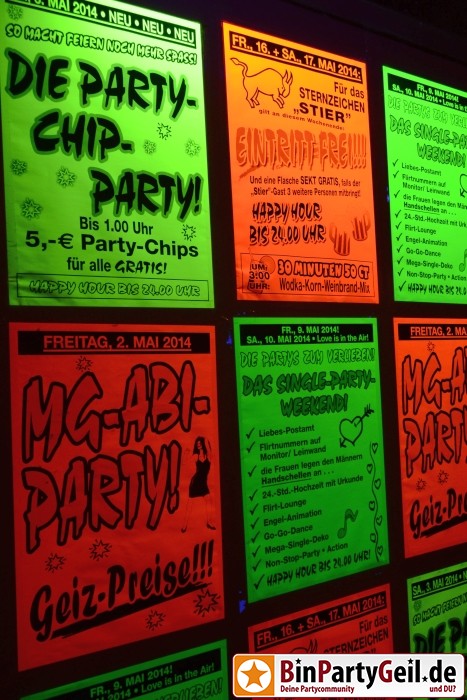 3. MAI 2014 • NEU • NEU • NEU
SO MACHT FEIERN NOCH MEHR SPASS!
DIE PARTY-
CHIP-
PARTY!
Bis 1.00 Uhr
5,-€ Party-Chips
für alle GRATIS!
HAPPY HOUR BIS 24.00 UHR
FR., 16. + SA., 17. MAI 2014:
Für das
STERNZEICHEN
„STIER"
gilt an diesem Wochenende:
EINTRITT FREI!!!
Und eine Flasche SEKT GRATIS, falls der
„Stier"-Gast 3 weitere Personen mitbringt!
HAPPY HOUR
BIS 24.00 UHR
UM:
3:00
UHR:
30 MINUTEN 50 CT
Wodka-Korn-Weinbrand-Mix
FR., 9. MAI 2014!
SA., 10. MAI 2014 • Love is in the
DIE PARTYS ZUM VERLIEBEN!
DAS SINGLE-PARTY-
WEEKEND!
Liebes-Postamt
Flirtnummern auf
Monitor/ Leinwand
die Frauen legen den Männern
Handschellen an . . .
24.-Std.-Hochzeit mit
Flirt-Lounge
Engel-Animation
Go-Go-Dance
Mega-Single-Deko
Non-Stop-Party • Action
HAPPY HOUR BIS 24.00
FREITAG, 2. MAI 2014
MG-ABI-
PARTY!
Geiz-Preise!!!
FR., 9. MAI 2014!
SA., 10. MAI 2014 • Love is in the Air!
DIE PARTYS ZUM VERLIEBEN!
DAS SINGLE-PARTY-
WEEKEND!
✓ Liebes-Postamt
✓ Flirtnummern auf
Monitor/ Leinwand
✓ die Frauen legen den Männern
Handschellen an . . .
✓ 24.-Std.-Hochzeit mit Urkunde
✓ Flirt-Lounge
✓ Engel-Animation
✓ Go-Go-Dance
✓ Mega-Single-Deko
✓ Non-Stop-Party • Action
✓ HAPPY HOUR BIS 24.00 UHR!
FREITAG, 2. MA
MG-A
PARTY
Geiz-Prei
FR., 9. MAI 2014!
SA., 10. MAI 2014 • Love is in the Air!
FR., 16. + SA., 17. MAI 2014:
Für das
STERNZEICHEN
SA., 3. MAI 2014
SO MACHT FEIERN
DIE P
BinPartyGeil.de
Deine Partycommunity und DU?